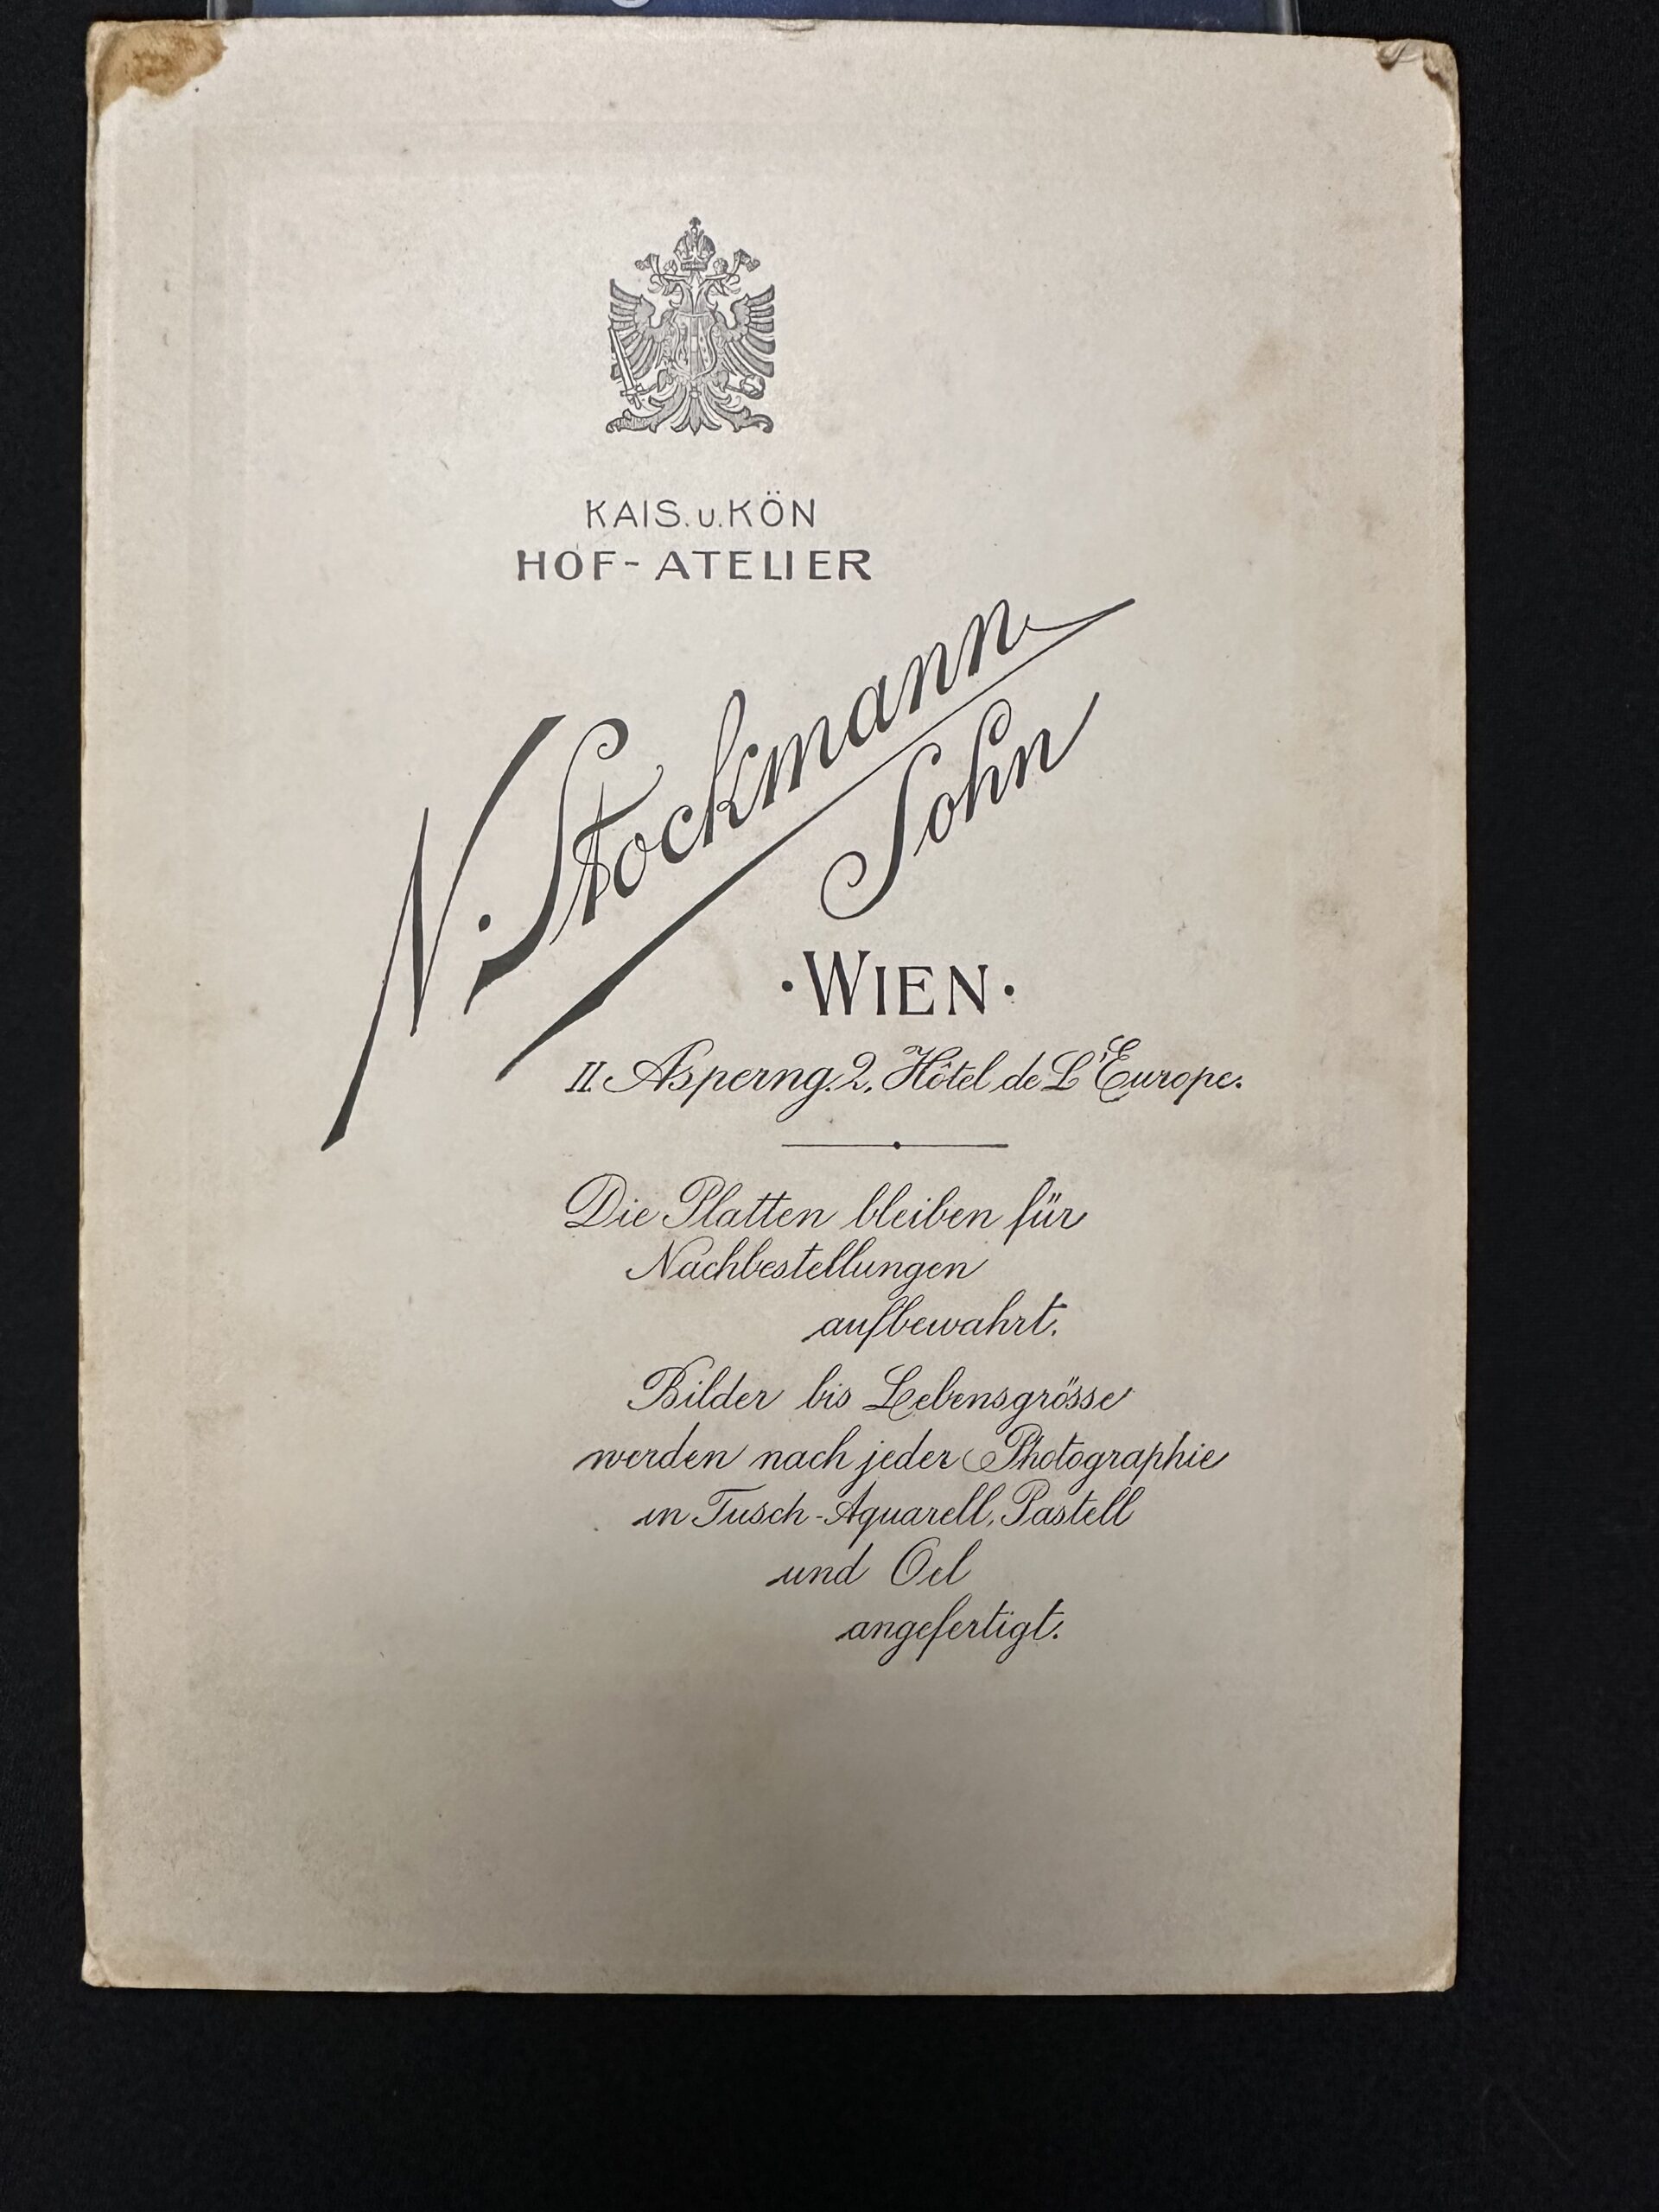 KAIS. u. KÖN
HOF-ATELIER
N. Stockmann
Sohn
·WIEN·
II. Asperng. 2, Hôtel de L'Europe.
Die Platten bleiben für
Nachbestellungen
aufbewahrt.
Bilder bis Lebensgrösse
werden nach jeder Photographie
in Tusch-Aquarell, Pastell
und Oel
angefertigt.